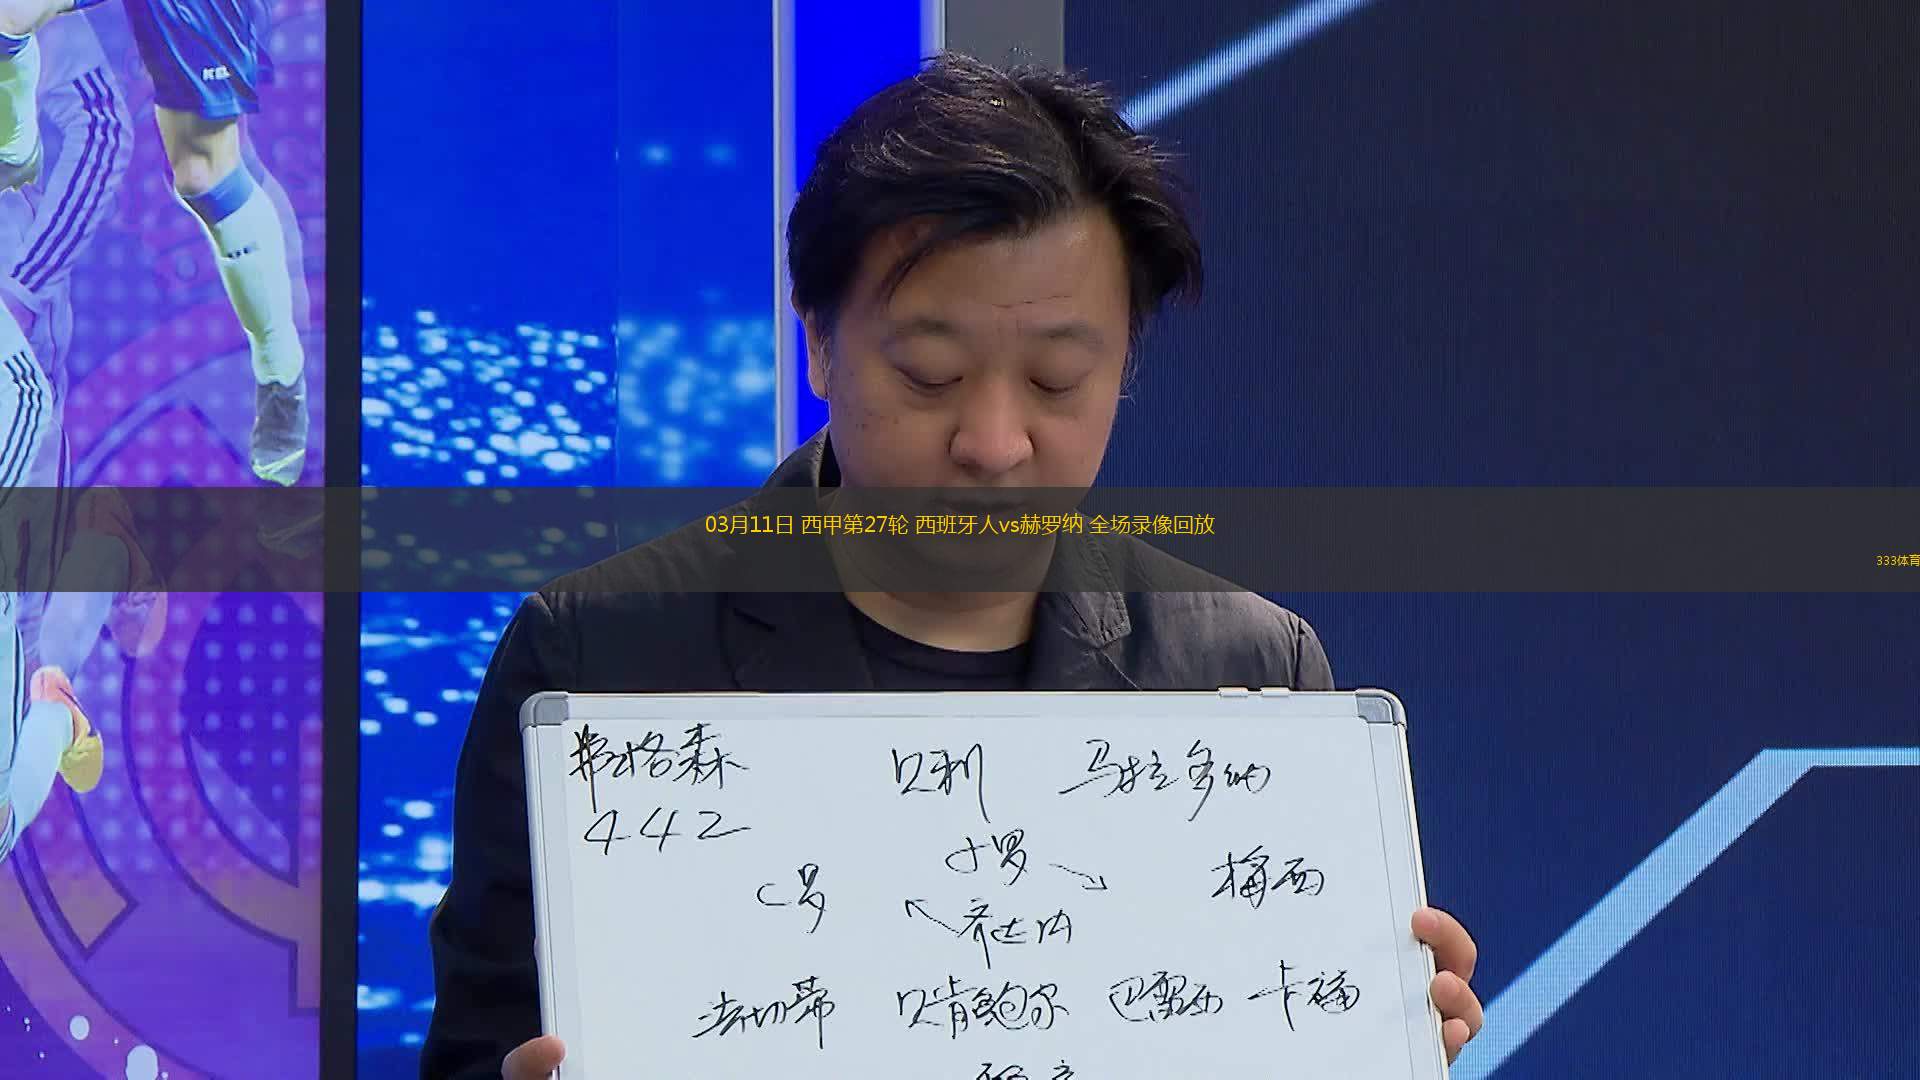 03月11日 西甲第27轮 西班牙人vs赫罗纳 全场录像回放
333体育
弗格森 贝利 马拉多纳
442
小罗
C罗 梅西
齐达内
法切蒂 贝肯鲍尔 巴雷西 卡福